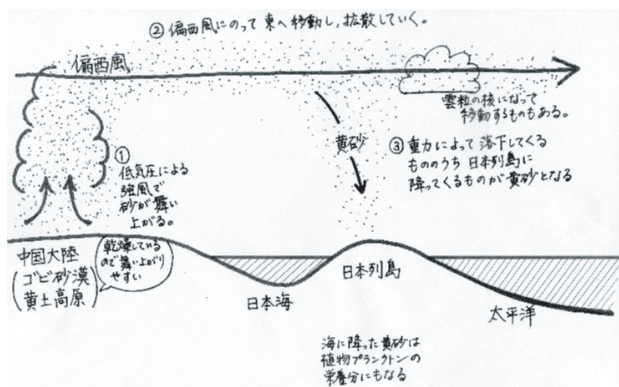 ② 偏西風にのって東へ移動し、拡散していく。
偏西風
雲粒の核になって
移動するものもある。
①
低気圧による
強風で
砂が舞い
上がる。
黄砂
③ 重力によって落下してくる
もののうち日本列島に
降ってくるものが黄砂となる
中国大陸
(ゴビ砂漠
黄土高原)
乾燥している
ので舞い上がり
やすい
日本海
日本列島
太平洋
海に降った黄砂は
植物プランクトンの
栄養分にもなる